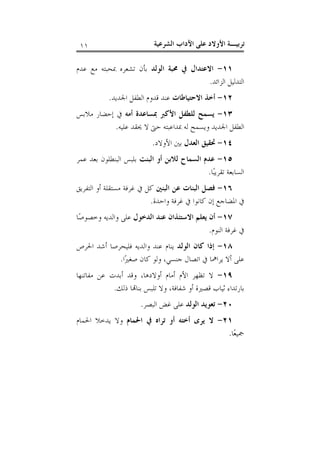 تربيـــة الأولاد على الآداب الشرعية
١١
١١- الاعتدال في محبة الولد بأن تشعره بمحبته مع عدم
التدليل الزائد.
١٢- أخذ الاحتياطات عند قدوم الطفل الجديد.
١٣- يسمح للطفل الأكبر بمساعدة أمه في إحضار ملابس
الطفل الجديد ويسمح له بمداعبته حتى لا يحقد عليه.
١٤- تحقيق العدل بين الأولاد.
١٥- عدم السماح للابن أو البنت بلبس البنطلون بعد عمر
السابعة تقريبًا.
١٦- فصل البنات عن البنين كل في غرفة مستقلة أو التفريق
في المضاجع إن كانوا في غرفة واحدة.
١٧- أن يعلم الاستئذان عند الدخول على والديه وخصوصًا
في غرفة النوم.
١٨- إذا كان الولد ينام عند والديه فليحرصا أشد الحرص
على ألا يراهما في اتصال جنسي، ولو كان صغيرًا.
١٩- لا تظهر الأم أمام أولادها، وقد أبدت عن مفاتنها
بارتداء ثياب قصيرة أو شفافة، ولا تلبس بناتها ذلك.
٢٠- تعويد الولد على غض البصر.
٢١- لا يرى أخته أو تراه في الحمام ولا يدخلا الحمام
جميعًا.